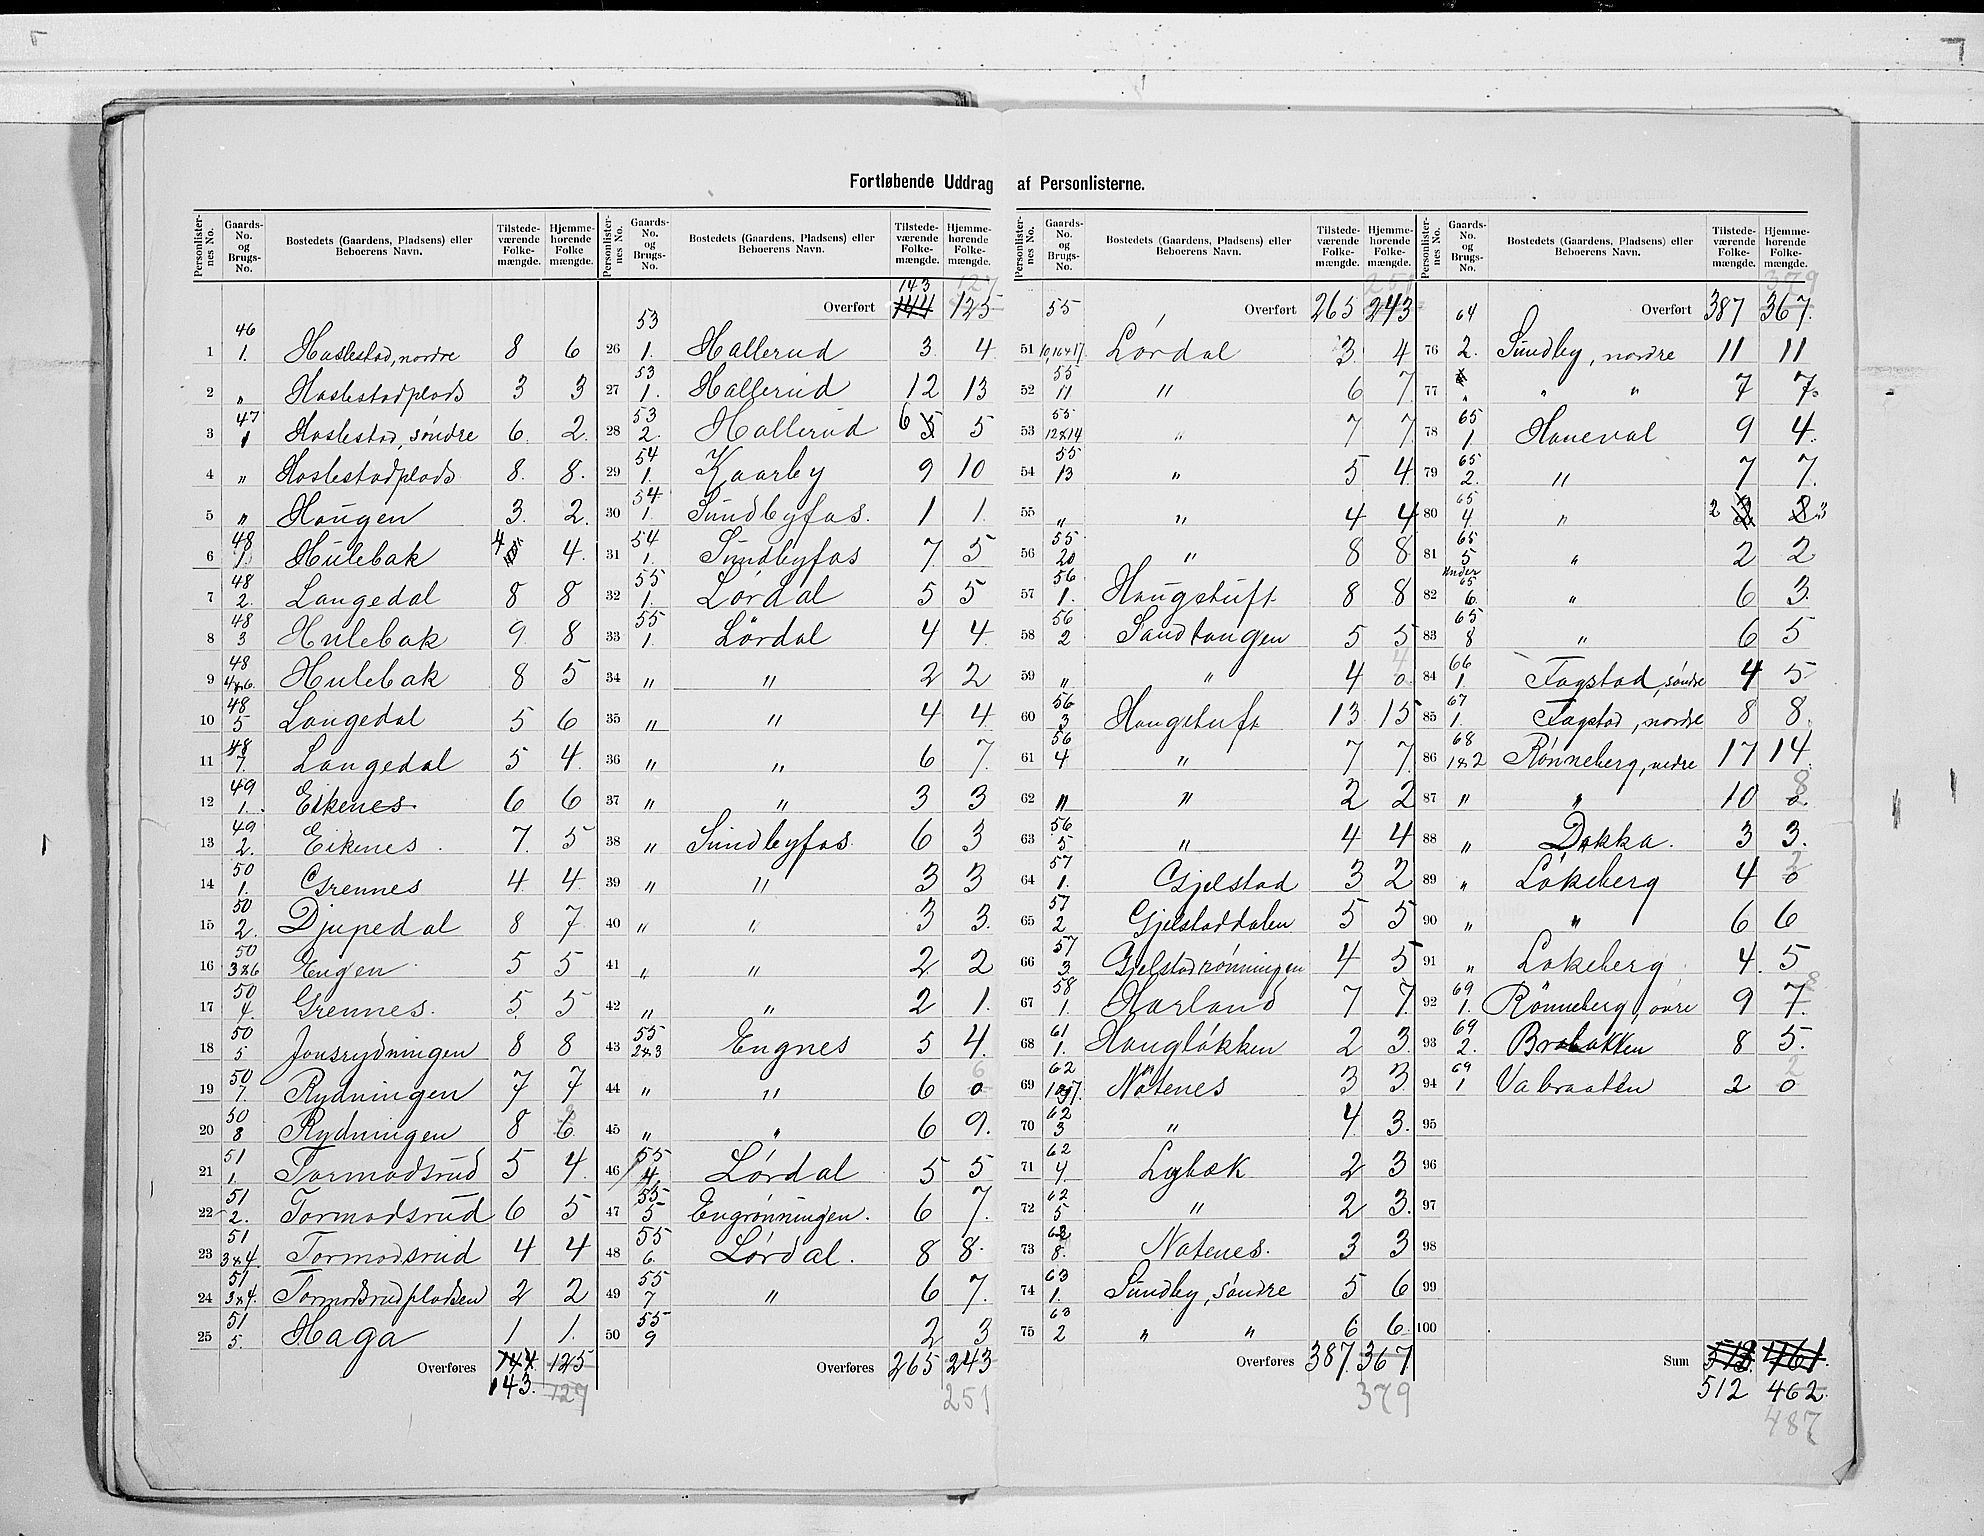 Fortløbende Uddrag af Personlisterne.
Personlister- nes No. | Gaards- No. og Brugs- No. | Bostedets (Gaardens, Pladsens) eller Beboerens Navn. | Tilstede- værende Folke- mængde. | Hjemme- hørende Folke mængde.
1 46 1. Haslestad, nordre 8 6
2 " Haslestadplads 3 3
3 47 1 Haslestad, søndre 6. 2.
4 " Haslestadplads 8. 8.
5 " Haugen 3. 2.
6 48 1. Hulebak 4 4.
7 48 2. Langedal 8 8
8 48 3 Hulebak 9. 8
9 48 4&6. Hulebak 8 5
10 48 5 Langedal 5 6
11 48 7. Langedal 5 4.
12 49 1. Eikenes 6 6
13 49 2. Eikenes. 7. 5
14 50 1. Grennes 4. 4.
15 50 2. Djupedal 8 7
16 50 3&6 Engen 5 5
17 50 4. Grennes. 5. 5
18 50 5 Jonsrydningen 8 8
19 50 7. Rydningen 7 7
20 50 8 Rydningen 8 6. 8
21 51 1. Tormodsrud 5 4.
22 51 2. Tormodsrud 6 5
23 51 3&4. Tormodsrud 4 4
24 51 3&4. Tormodsrudpladsen 2 2
25 51 5. Haga 1 1.
Overføres 144 125
143. 127
Personlister- nes No. | Gaards- No. og Brugs- No. | Bostedets (Gaardens, Pladsens) eller Beboerens Navn. | Tilstede- værende Folke- mængde. | Hjemme- hørende Folke- mængde.
143 127
Overført 144 125
26 53 1. Hallerud 3. 4.
27 53 1. Hallerud 12 13
28 53 2. Hallerud 6 5 5
29 54 1. Kaarby 9 10
30 54 1. Sundbyfos. 1 1.
31 54 1. Sundbyfos 7 5
32 55 1. Lørdal 5 5
33 55 1. Lørdal 4 4.
34 " " 2 2
35 " " 4 4.
36 " " 6 7.
37 " " 3 3
38 " Sundbyfos. 6 3
39 " " 3 3
40 " " 3 3.
41 " " 2 2
42 " " 2 1.
43 55 2&3 Engnes 5 4.
44 " " 6 0 6
45 " " 6 9.
46 55 4. Lørdal 5 5
47 55 5 Engrønningen. 6 7.
48 55 6. Lørdal. 8 8.
49 55 7 " 6 7.
50 55 9 2 3
Overføres 265 243
251
Personlister- nes No. | Gaards- No. og Brugs- No. | Bostedets (Gaardens, Pladsens) eller Beboerens Navn. | Tilstede- værende Folke- mængde. | Hjemme- hørende Folke- mængde.
251
Overført 265 243
51 55 10,16&17. Lørdal 3. 4
52 55 11 " 6 7.
53 55 12&14 " 7 7.
54 55 13 " 5 4.
55 " " 4 4
56 55 20 " 8 8
57 56 1. Haugstuft 8 8
58 56 2 Sandtangen 5 5
59 " " 4 0. 4
60 56 3 Haugstuft 13 15
61 56 4 " 7 7.
62 " " 2 2
63 56 5 " 4 4
64 57 1. Gjelstad 3 2
65 57 2 Gjelstaddalen 5 5
66 57 3 Gjelstadrønningen 4 5
67 58 1. Harland 7 7.
68 61 1. Haugløkken 2 3.
69 62 Nøtenes 3 3.
70 62 3 " 4. 3.
71 62 4. Lybæk 2 3
72 62 5 " 2 3.
73 62 8. Nøtenes. 3 3
74 63 1. Sundby, søndre 5 6
75 63 2 " " 6 6.
Overføres 387. 367
379
Personlister- nes No. | Gaards- No. og Brugs- No. | Bostedets (Gaardens, Pladsens) eller Beboerens Navn. | Tilstede- værende Folke- mængde. | Hjemme- hørende Folke- mængde.
379
Overført 387 367.
76 64 2. Sundby, nordre 11 11
77 " " " 7 7.
78 65 1. Haneval 9 4.
79 65 2. " 7 7.
80 65 4. " 2 3 2 3
81 65 5 " 2 2
82 under 65 6. " 6 3.
83 65 8 " 6 5
84 66 1. Fagstad, søndre 4 5
85 67 1. Fagstad, nordre 8 8.
86 68 1&2 Rønneberg, nedre 17 14.
87 " " 10 0. 8
88 " Dokka. 3 3.
89 " Løkeberg 4 0
90 " " 6 6
91 " Løkeberg 4. 5
92 69 1. Rønneberg, øvre 9 7. 8
93 69 2. Brobakken 8 5.
94 69 1 Vabraaten 2 0 2
95
96
97
98
99
100
Sum 513. 461.
512 462.
487